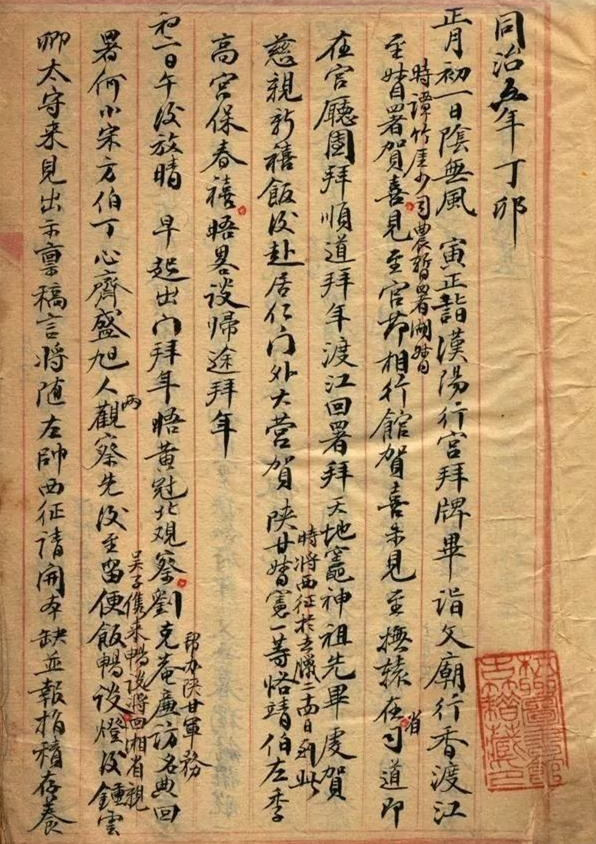 同治五年丁卯
正月初一日陰無風　寅正詣漢陽行宮拜牌畢詣文廟行香渡江
時譚竹厓少司農暫署湖督
至督署賀喜見至官節相行館賀喜未見至撫轅在省司道即
在官廳團拜順道拜年渡江回署拜天地竈神祖先畢虔賀
慈親新禧飯後赴居仁門外大營賀陝甘督憲一等恪靖伯左季
時將西征於去臘二十四日到此
高宮保春禧晤畧談歸途拜年
初二日午後放晴　早起出門拜年晤黃冠北观察劉克庵廉訪名典回
幫办陝甘軍務
署何小宋方伯丁心齋盛旭人兩觀察先後至留便飯暢談燈後鍾雲
吳子儁來暢談將回湘省親
卿太守来見出示稟稿言將随左帥西征請開本缺並報捐積存養